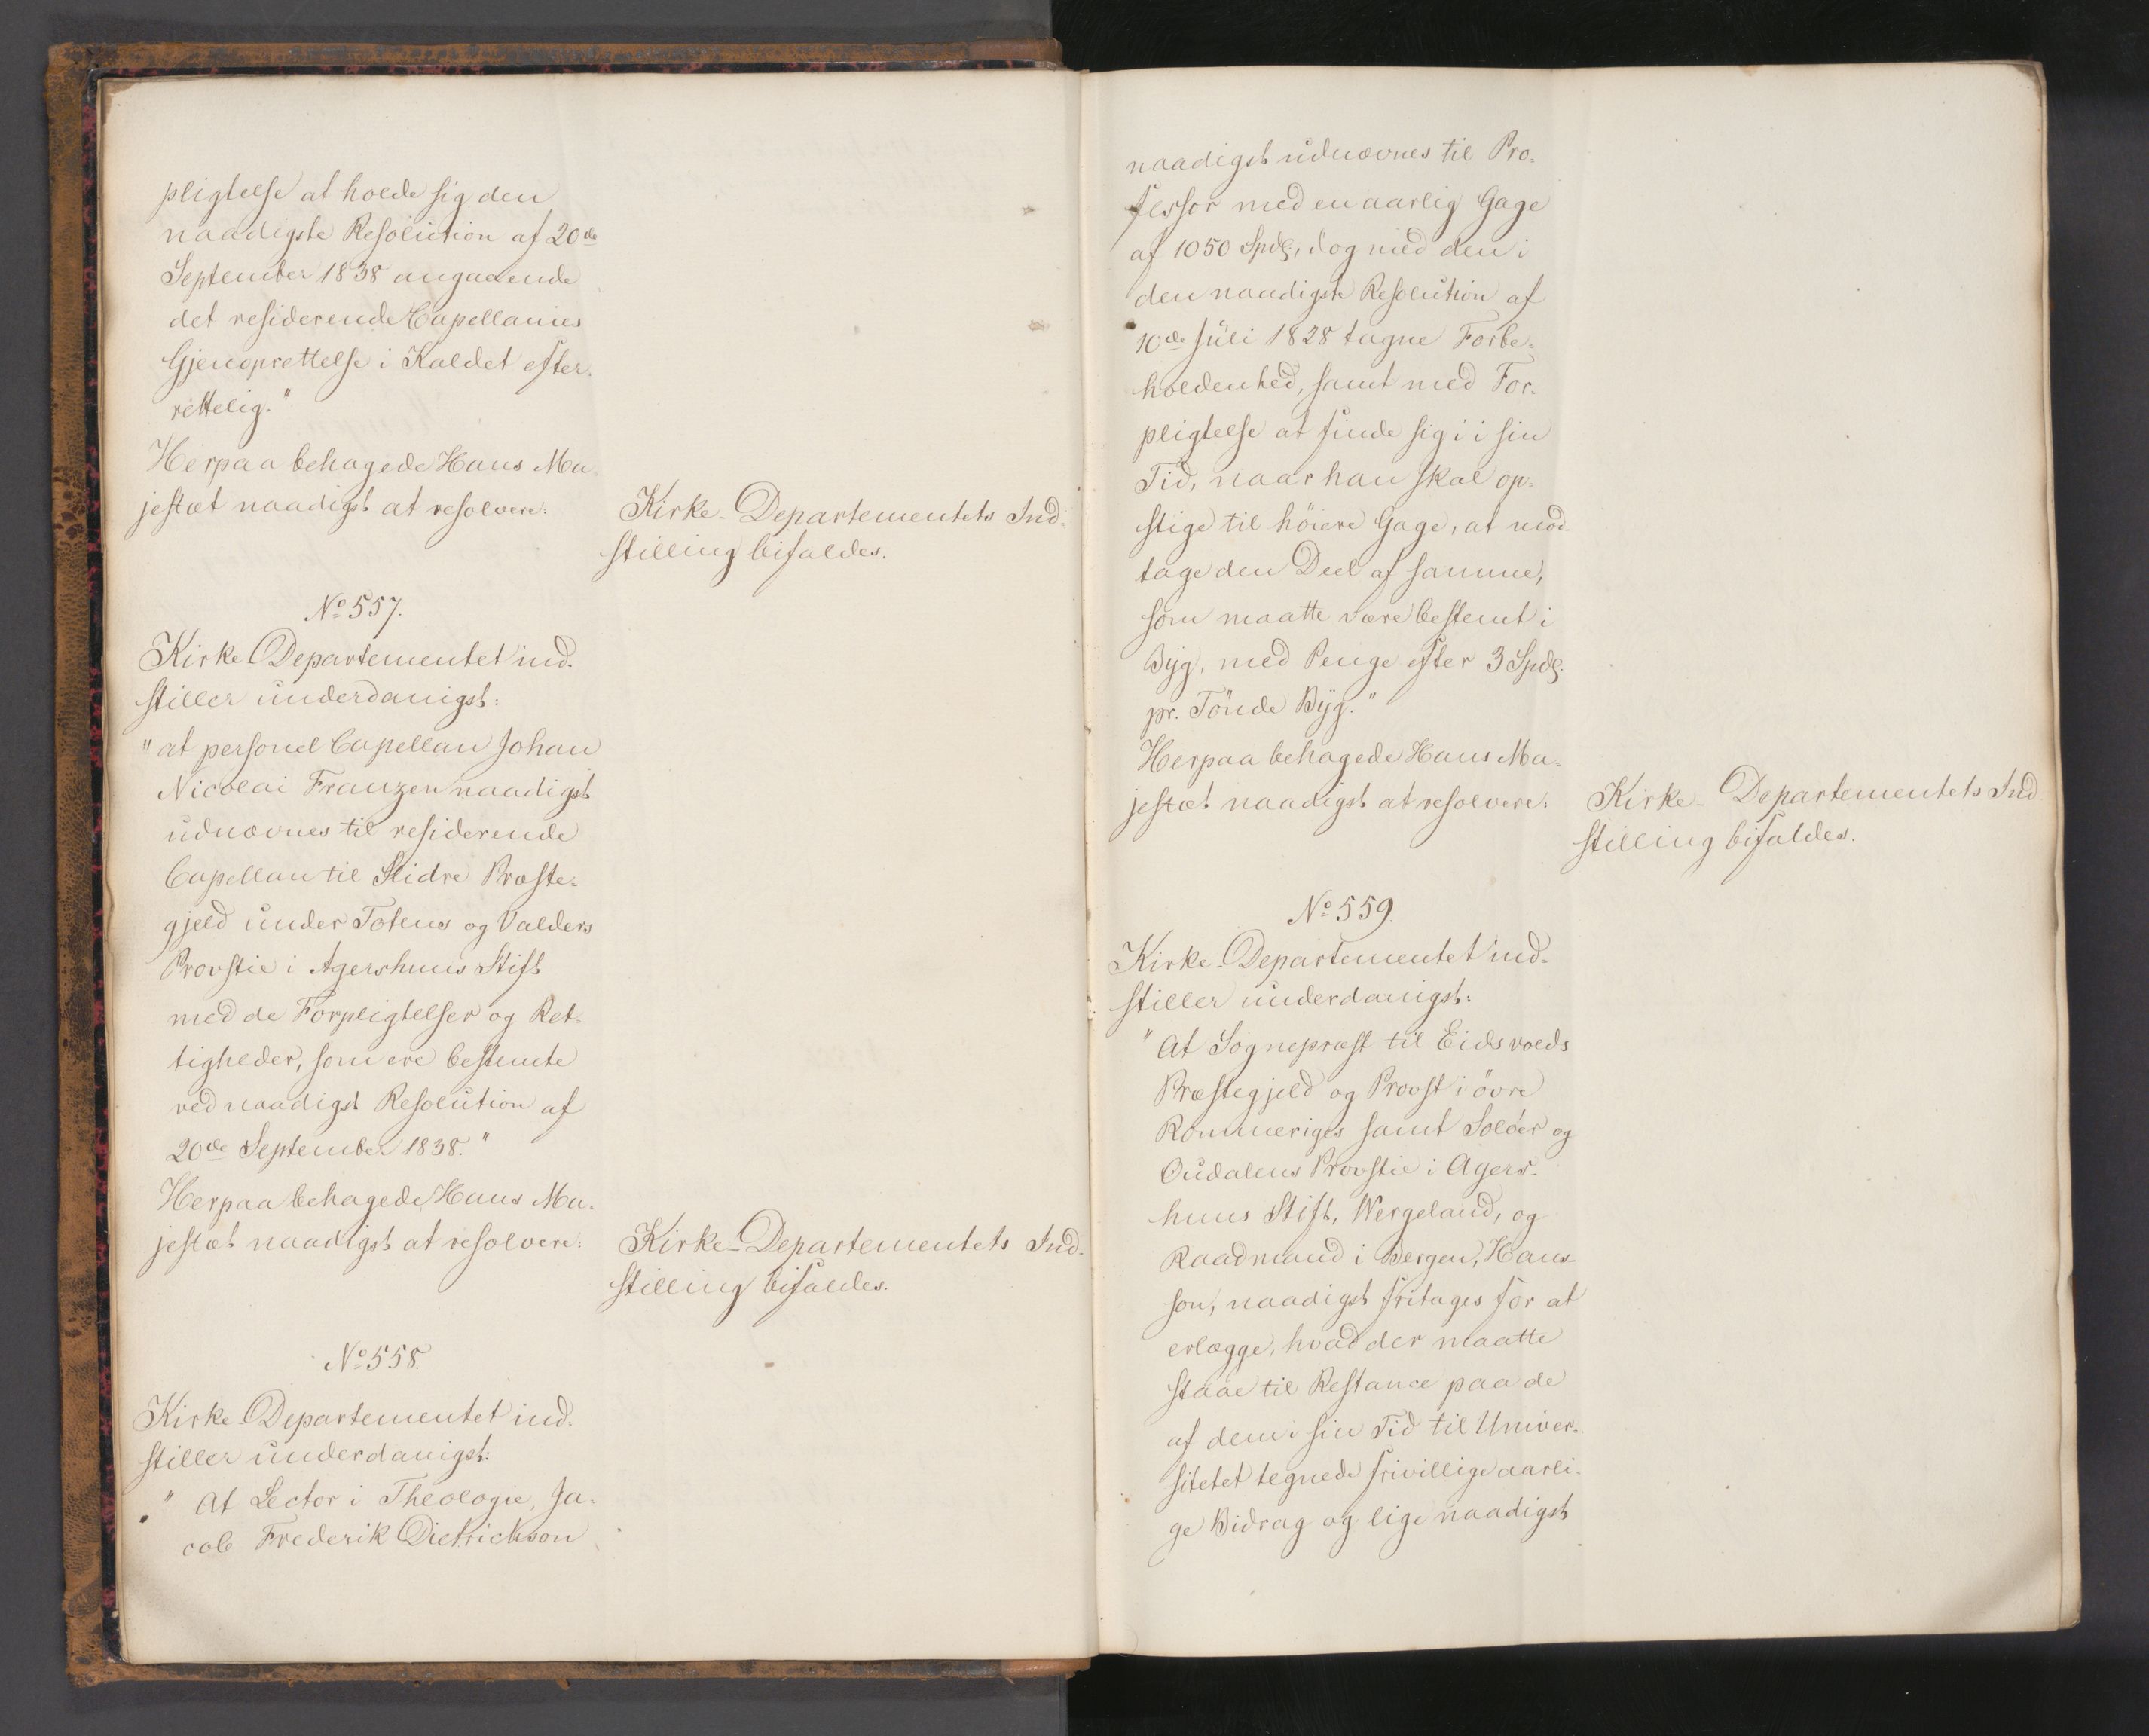 pligtelse at holde sig den
naadigste Resolution af 20de
September 1838 angaaende
det residerende Capellanies
Gjenoprettelse i Kaldet efter-
rettelig."
Herpaa behagede Hans Ma-
jestæt naadigst at resolvere:
Kirke-Departementets Ind-
stilling bifaldes.
No 557.
Kirke-Departementet ind-
stiller underdanigst:
"at personel Capellan Johan
Nicolai Franzen naadigst
udnævnes til residerende
Capellan til Slidre Præste-
gjeld under Totens og Valders
Provstie i Agershuus Stift
med de Forpligtelser og Ret-
tigheder, som ere bestemte
ved naadigst Resolution af
20de September 1838."
Herpaa behagede Hans Ma-
jestæt naadigst at resolvere:
Kirke-Departementets Ind-
stilling bifaldes.
No 558.
Kirke-Departementet ind-
stiller underdanigst:
"At Lector i Theologie, Ja-
cob Frederik Dietrichson
naadigst udnævnes til Pro-
fessor med en aarlig Gage
af 1050 Spdl., dog med den i
den naadigste Resolution af
10de Juli 1828 tagne Forbe-
holdenhed, samt med For-
pligtelse at finde sig i i sin
Tid, naar han skal op-
stige til höiere Gage, at mod-
tage den Deel af samme,
som maatte være bestemt i
Byg, med Penge efter 3 Spdl.
pr. Tönde Byg."
Herpaa behagede Hans Ma-
jestæt naadigst at resolvere:
Kirke-Departementets Ind
stilling bifaldes.
No 559.
Kirke-Departementet ind-
stiller underdanigst:
"At Sognepræst til Eidsvolds
Præstegjeld og Provst i övre
Rommeriges samt Solöer og
Oudalens Provstie i Agers-
huus Stift, Wergeland, og
Raadmand i Bergen, Hans-
son, naadigst fritages for at
erlægge, hvad der maatte
staae til Restance paa de
af dem i sin Tid til Univer-
sitetet tegnede frivillige aarli-
ge Bidrag og lige naadigst